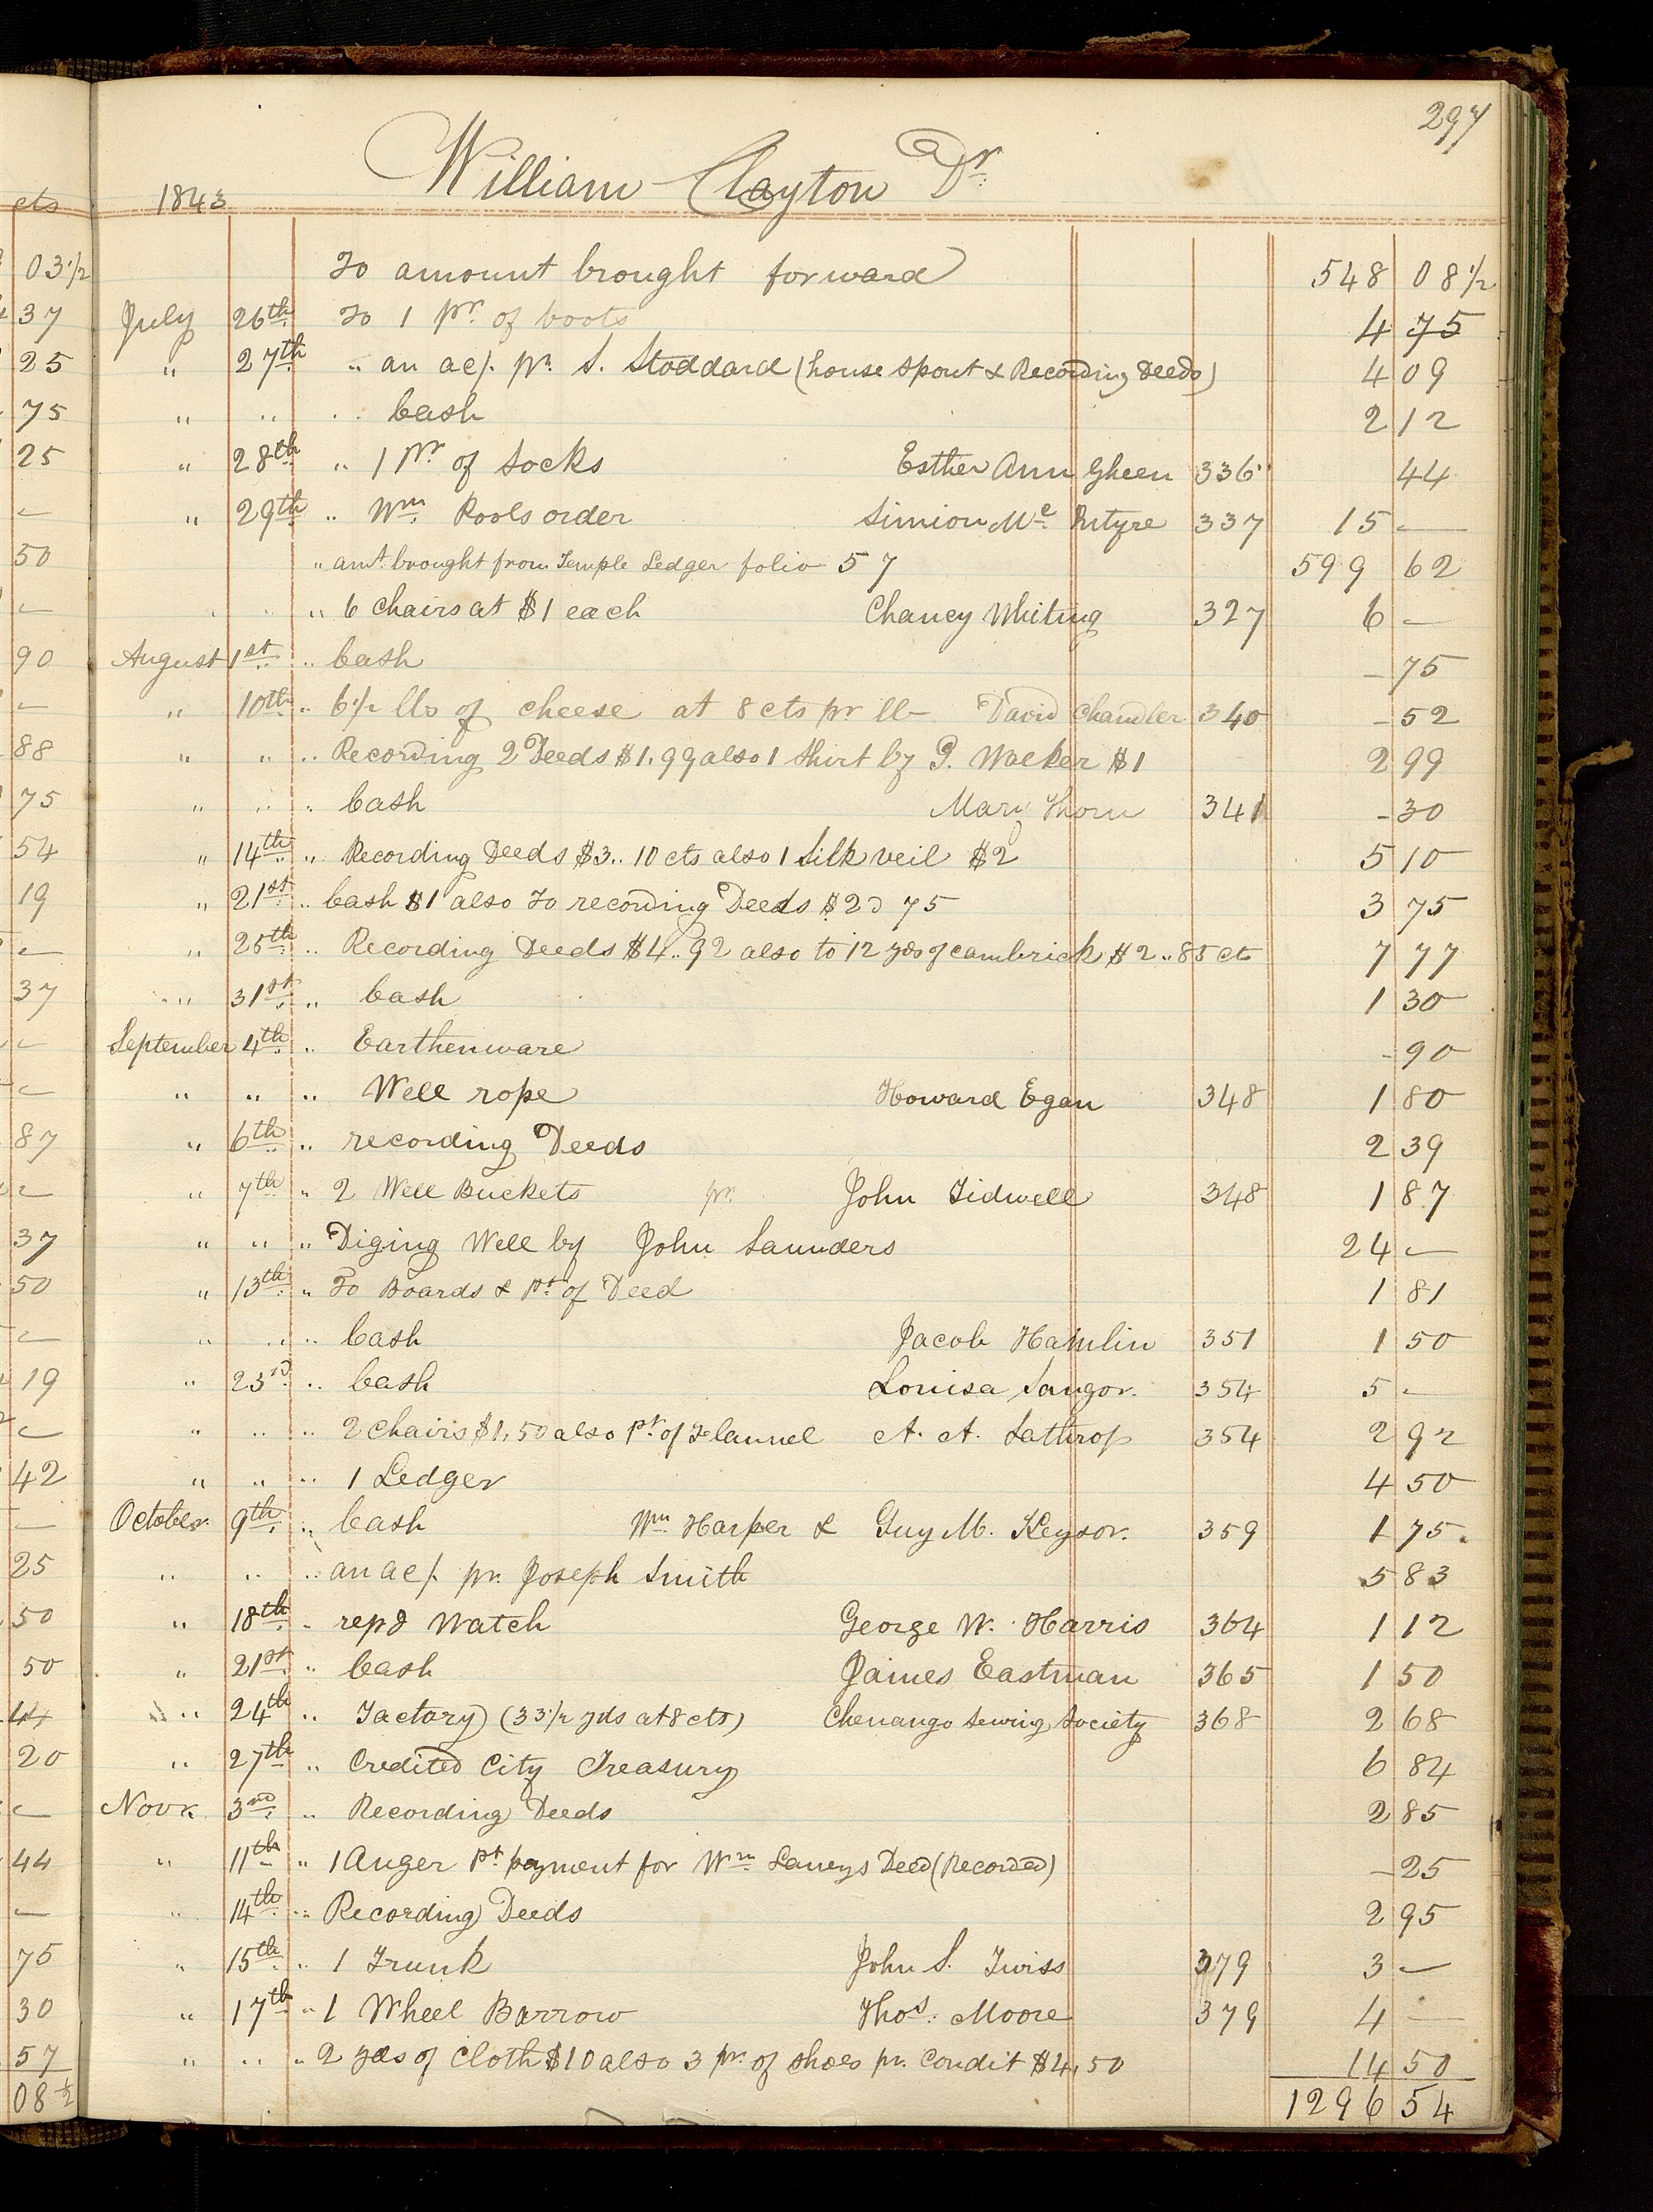 297
William Clayton Dr.
cts 1843
03 1/2 To amount brought forward 548 08 1/2
37 July 26th To 1 pr. of boots 4 75
25 " 27th " an ac/. pr. S. Stoddard (house spout & Recording Deeds) 4 09
75 " " " Cash 2 12
25 " 28th " 1 Pr. of Socks Esther Ann Gheen 336 44
— " 29th " Wm. Pools order Simion Mc. Intyre 337 15 —
50 " amt. brought from Temple Ledger folio 57 599 62
— " " " 6 Chairs at $1 each Chancy Whiting 327 6 —
90 August 1st " Cash — 75
— " 10th " 6 1/2 lbs of cheese at 8 cts pr lb David Chandler 340 — 52
88 " " " Recording 2 Deeds $1.99 also 1 Shirt by P. Walker $1 2 99
75 " " " Cash Mary Thorn 341 — 30
54 " 14th " Recording Deeds $3.. 10 cts also 1 Silk veil $2 5 10
19 " 21st " Cash $1 also To recording Deeds $2 75 3 75
— " 25th " Recording Deeds $4..92 also to 12 yds of cambrick $2..85 cts 7 77
37 " 31st " Cash 1 30
— September 4th " Earthenware — 90
— " " " Well rope Howard Egan 348 1 80
87 " 6th " recording Deeds 2 39
— " 7th " 2 Well Buckets pr. John Tidwell 348 1 87
37 " " " Diging Well by John Saunders 24 —
50 " 13th " To Boards & Pt. of Deed 1 81
— " " " Cash Jacob Hamlin 351 1 50
19 " 23rd " Cash Louisa Sangor. 354 5 —
— " " " 2 Chairs $1.50 also Pr. of Flannel A. A. Lathrop 354 2 92
42 " " " 1 Ledger 4 50
— October 9th " Cash Wm. Harper & Guy M. Keysor. 359 1 75.
25 " " " an ac/. pr. Joseph Smith 5 83
50 " 18th " repd Watch George W. Harris 364 1 12
50 " 21st " Cash James Eastman 365 1 50
44 " 24th " Factory (33 1/2 yds at 8 cts) Chenango Sewing Society 368 2 68
20 " 27th " Credited City Treasury 6 84
— Novr. 3rd " Recording Deeds 2 85
44 " 11th " 1 Auger Pt. payment for Wm. Laneys Deed (Recorded) — 25
— " 14th " Recording Deeds 2 95
75 " 15th " 1 Trunk John S. Twiss 379 3 —
30 " 17th " 1 Wheel Barrow Thos. Moore 379 4 —
57 " " " 2 yds of Cloth $10 also 3 pr. of shoes pr. Condit $4,50 14 50
08 1/2 1296 54